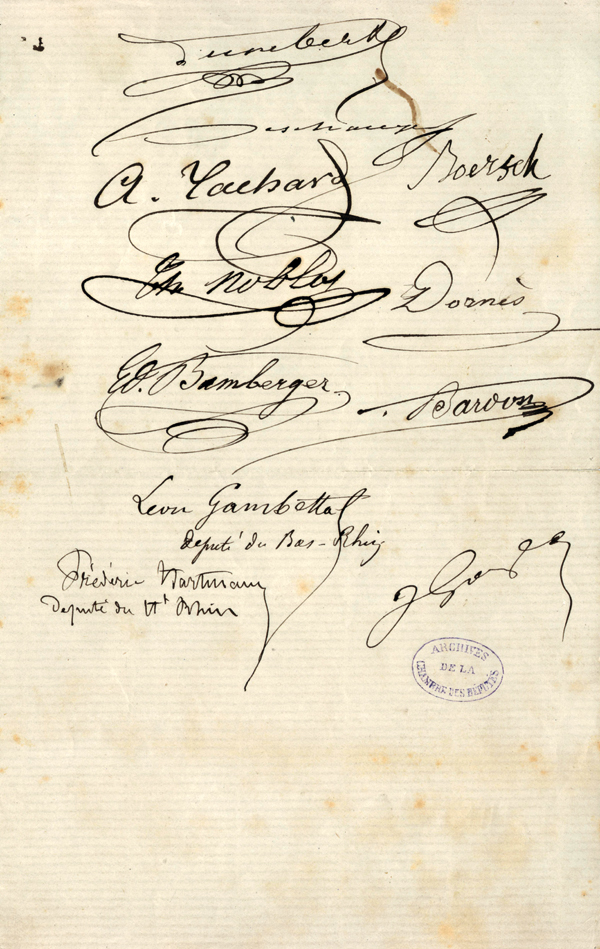 Humbert
Deschange
A. Tachard
Boersch
Th Noblot
Dornès
Ed. Bamberger
Bardon
Léon Gambetta
député du Bas-Rhin
Frédéric Hartmann
Deputé du Ht Rhin
ARCHIVES
DE LA
CHAMBRE DES DÉPUTÉS